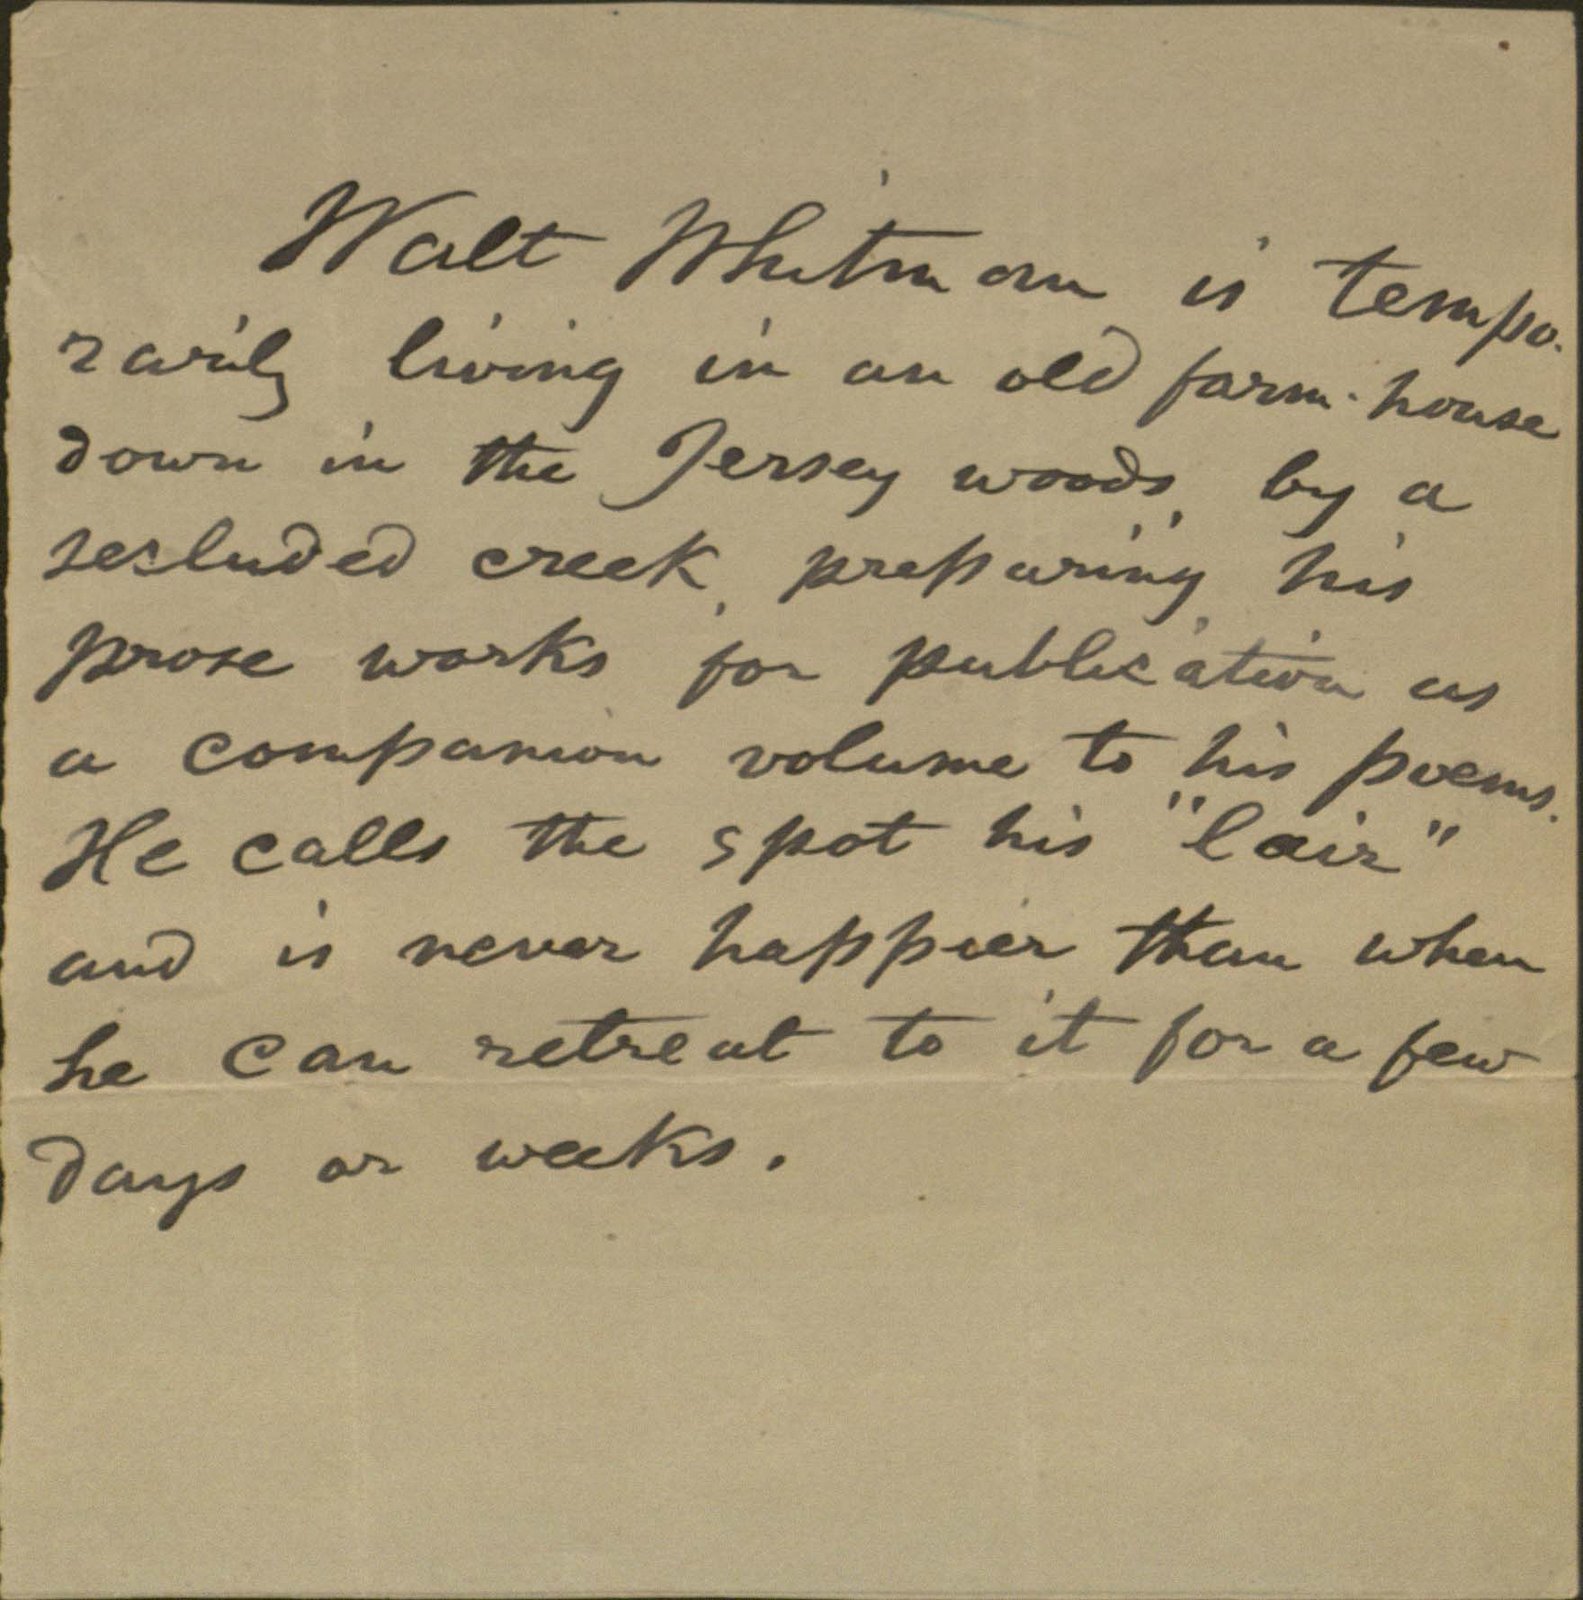 Walt Whitman is tempo-
rarily living in an old farm-house
down in the Jersey woods, by a
secluded creek, preparing his
prose works for publication as
a companion volume to his poems.
He calls the spot his "lair"
and is never happier than when
he can retreat to it for a few
days or weeks.